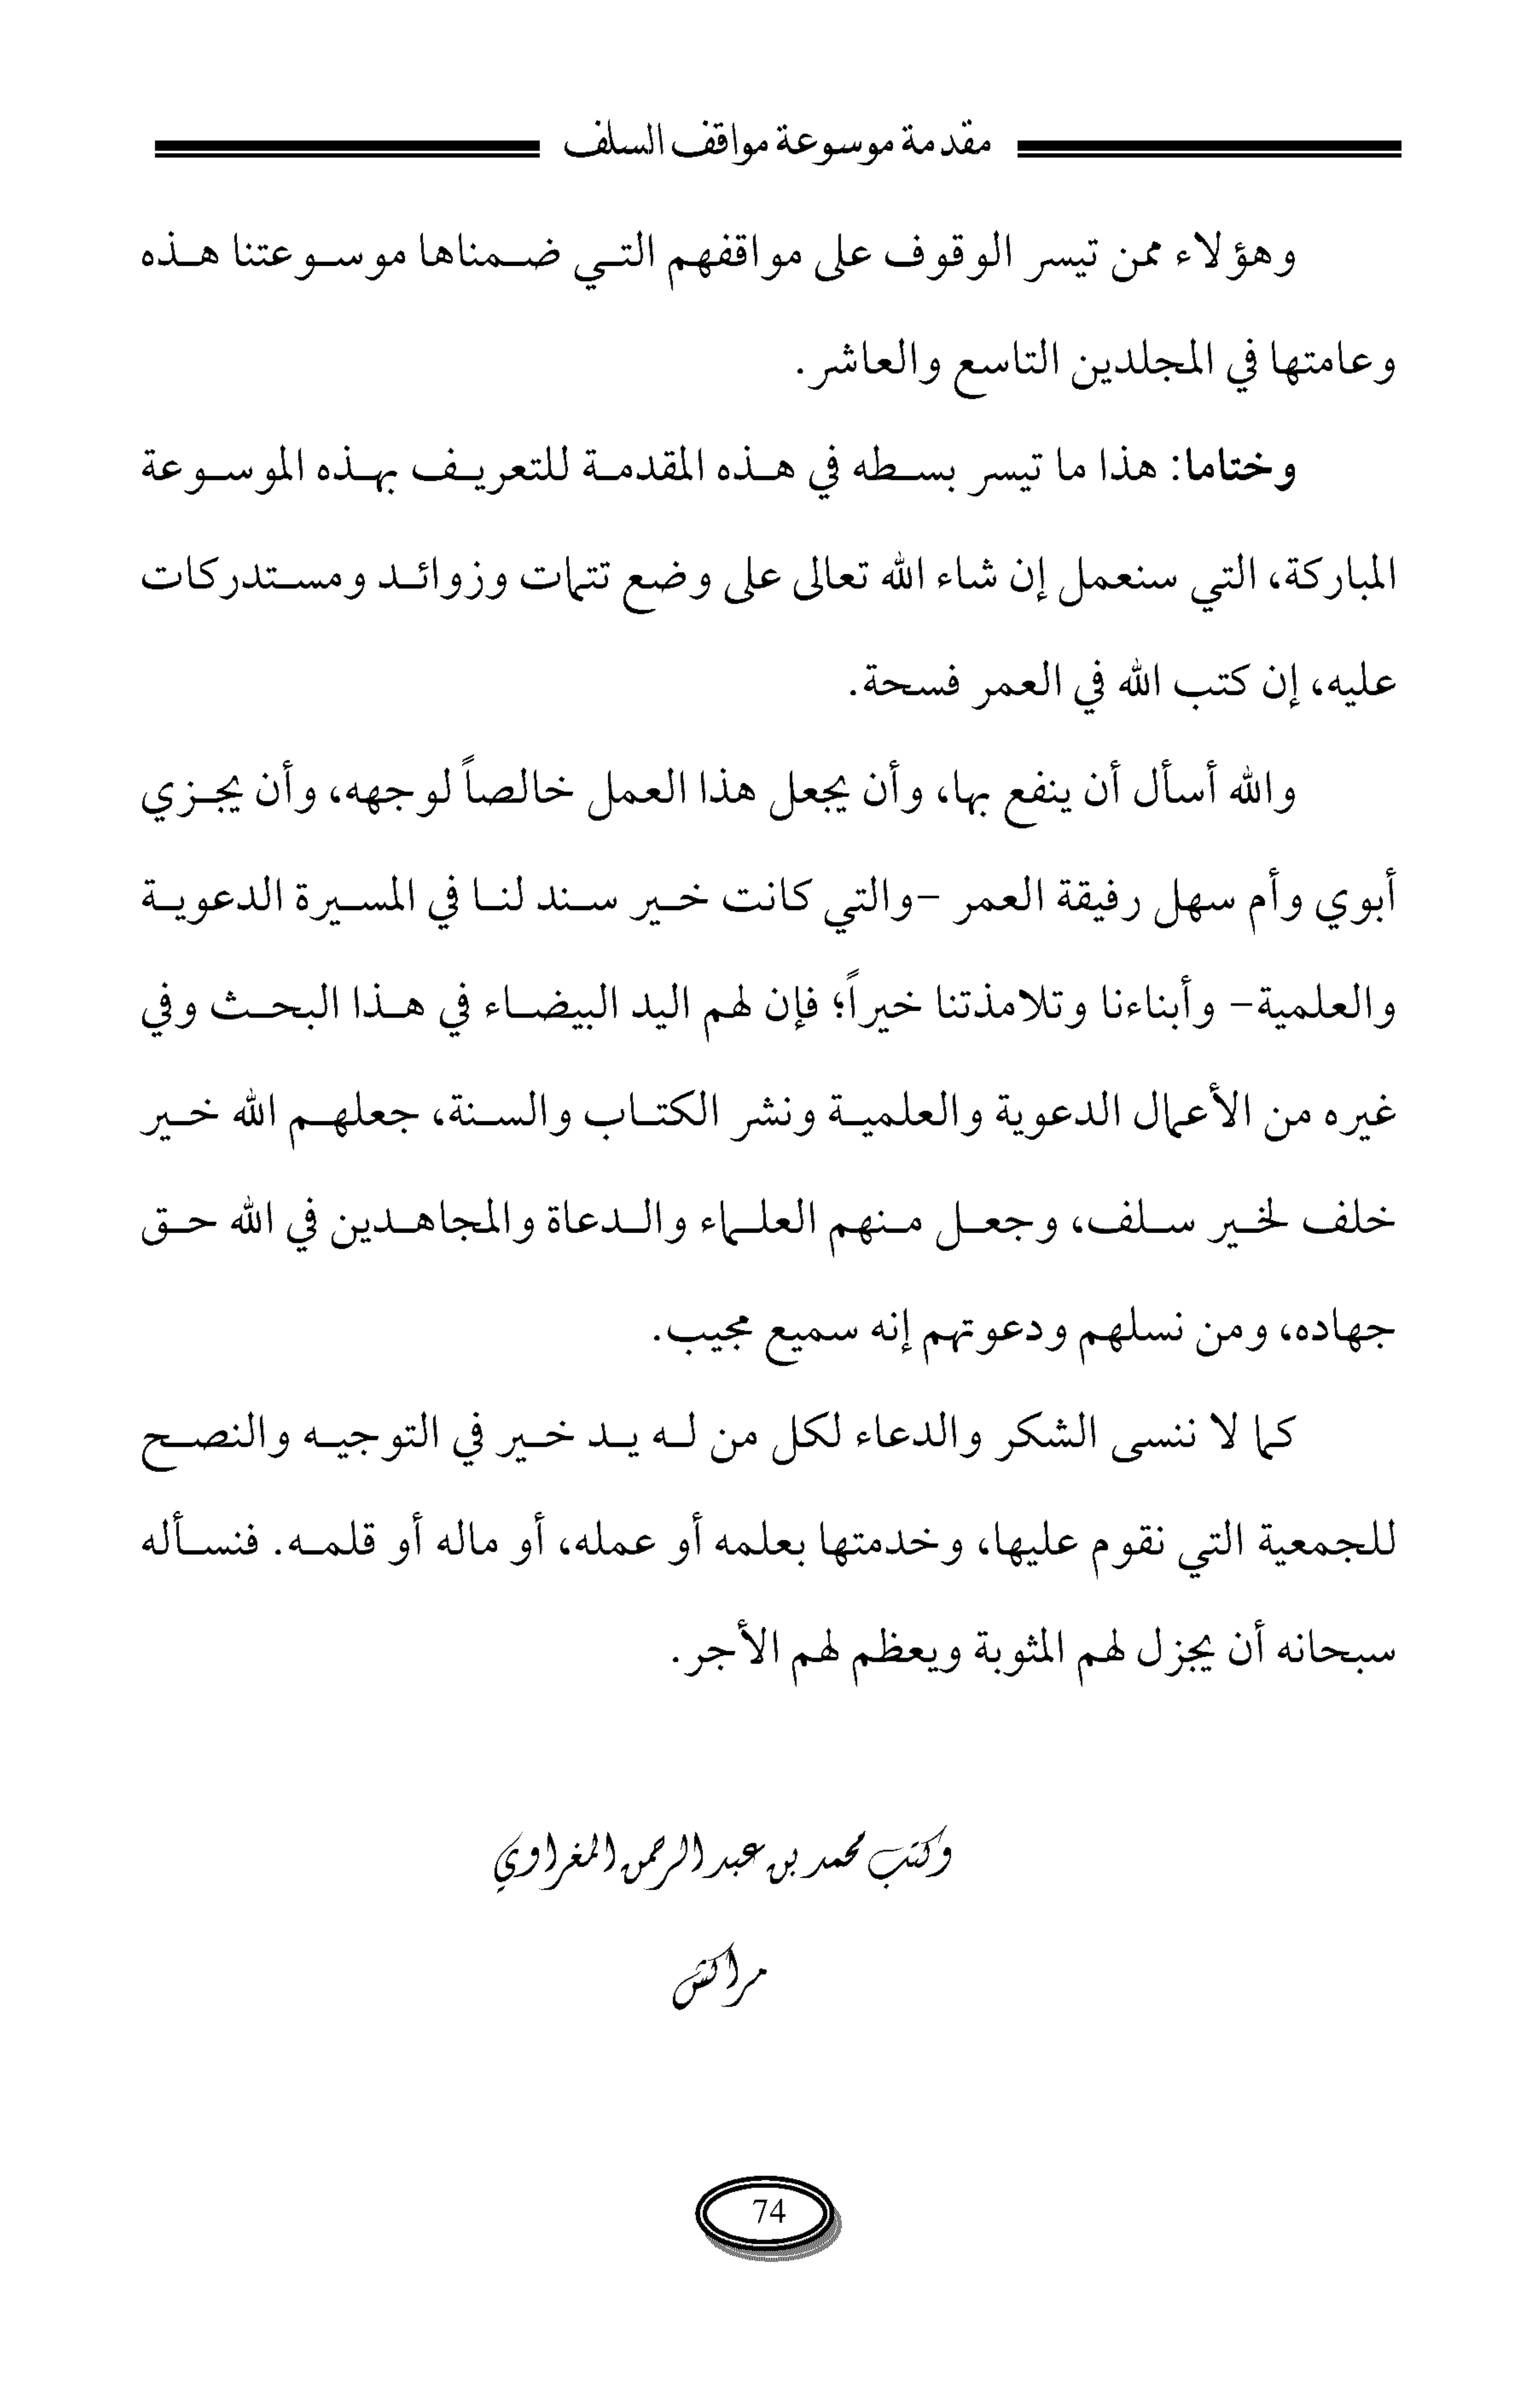 مقدمة موسوعة مواقف السلف
وهؤلاء ممن تيسر الوقوف على مواقفهم التي ضمناها موسوعتنا هذه
وعامتها في المجلدين التاسع والعاشر.
وختاما: هذا ما تيسر بسطه في هذه المقدمة للتعريف بهذه الموسوعة
المباركة، التي سنعمل إن شاء الله تعالى على وضع تتمات وزوائد ومستدركات
عليه، إن كتب الله في العمر فسحة.
والله أسأل أن ينفع بها، وأن يجعل هذا العمل خالصاً لوجهه، وأن يجزي
أبوي وأم سهل رفيقة العمر -والتي كانت خير سند لنا في المسيرة الدعوية
والعلمية- وأبناءنا وتلامذتنا خيراً؛ فإن لهم اليد البيضاء في هذا البحث وفي
غيره من الأعمال الدعوية والعلمية ونشر الكتاب والسنة، جعلهم الله خير
خلف لخير سلف، وجعل منهم العلماء والدعاة والمجاهدين في الله حق
جهاده، ومن نسلهم ودعوتهم إنه سميع مجيب.
كما لا ننسى الشكر والدعاء لكل من له يد خير في التوجيه والنصح
للجمعية التي نقوم عليها، وخدمتها بعلمه أو عمله، أو ماله أو قلمه. فنسأله
سبحانه أن يجزل لهم المثوبة ويعظم لهم الأجر.
وكتب محمد بن عبد الرحمن المغراوي
مراكش
74